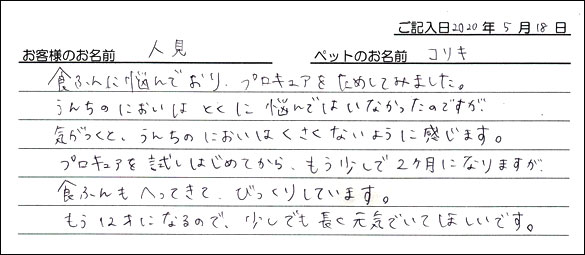 ご記入日2020年5月18日
お客様のお名前 人見 ペットのお名前 コリキ
食ふんに悩んでおり、プロキュアをためしてみました。
うんちのにおいはとくに悩んではいなかったのですが
気がつくと、うんちのにおいはくさくないように感じます。
プロキュアを試しはじめてから、もう少しで2ヶ月になりますが
食ふんもへってきて、びっくりしています。
もう12才になるので、少しでも長く元気でいてほしいです。